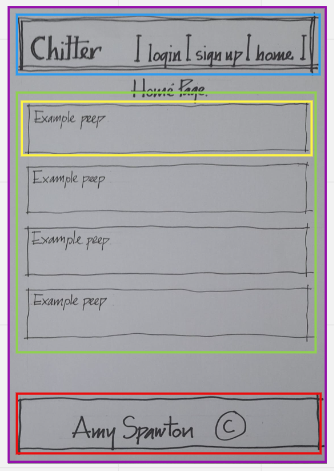 Chitter | login | sign up | home |
Home Page.
Example peep
Example peep
Example peep
Example peep
Amy Spawton ©